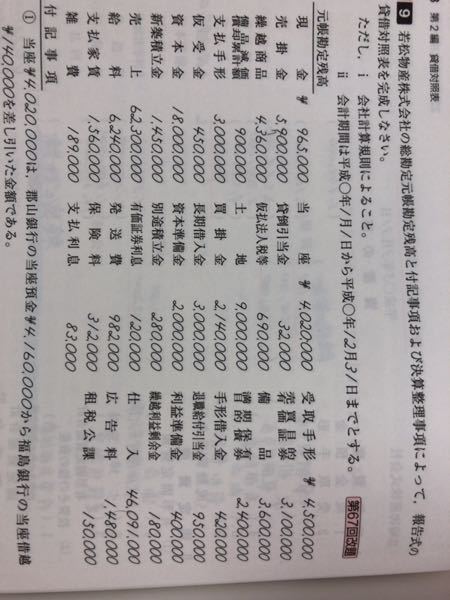 第2編 貸借対照表
9 若松物産株式会社の総勘定元帳勘定残高と付記事項および決算整理事項によって，報告式の
貸借対照表を完成しなさい。 第67回改題
ただし，ⅰ 会計計算規則によること。
ⅱ 会計期間は平成○年1月1日から平成○年12月31日までとする。
元帳勘定残高
現金 ¥ 965,000 当座 ¥ 4,020,000 受取手形 ¥ 4,500,000
売掛金 5,900,000 貸倒引当金 32,000 売買目的有価証券 3,100,000
繰越商品 4,360,000 仮払法人税等 690,000 備品 3,600,000
備品減価償却累計額 900,000 土地 9,000,000 満期保有目的債券 2,400,000
支払手形 3,000,000 買掛金 2,140,000 手形借入金 420,000
仮受金 450,000 長期借入金 3,000,000 退職給付引当金 950,000
資本金 18,000,000 資本準備金 2,000,000 利益準備金 400,000
新築積立金 1,450,000 別途積立金 280,000 繰越利益剰余金 180,000
売上 62,300,000 有価証券利息 120,000 仕入 46,091,000
給料 6,240,000 発送費 982,000 広告料 1,480,000
支払家賃 1,560,000 保険料 312,000 租税公課 150,000
雑費 189,000 支払利息 83,000
付記事項
① 当座¥4,020,000は，郡山銀行の当座預金¥4,160,000から福島銀行の当座借越
¥140,000を差し引いた金額である。